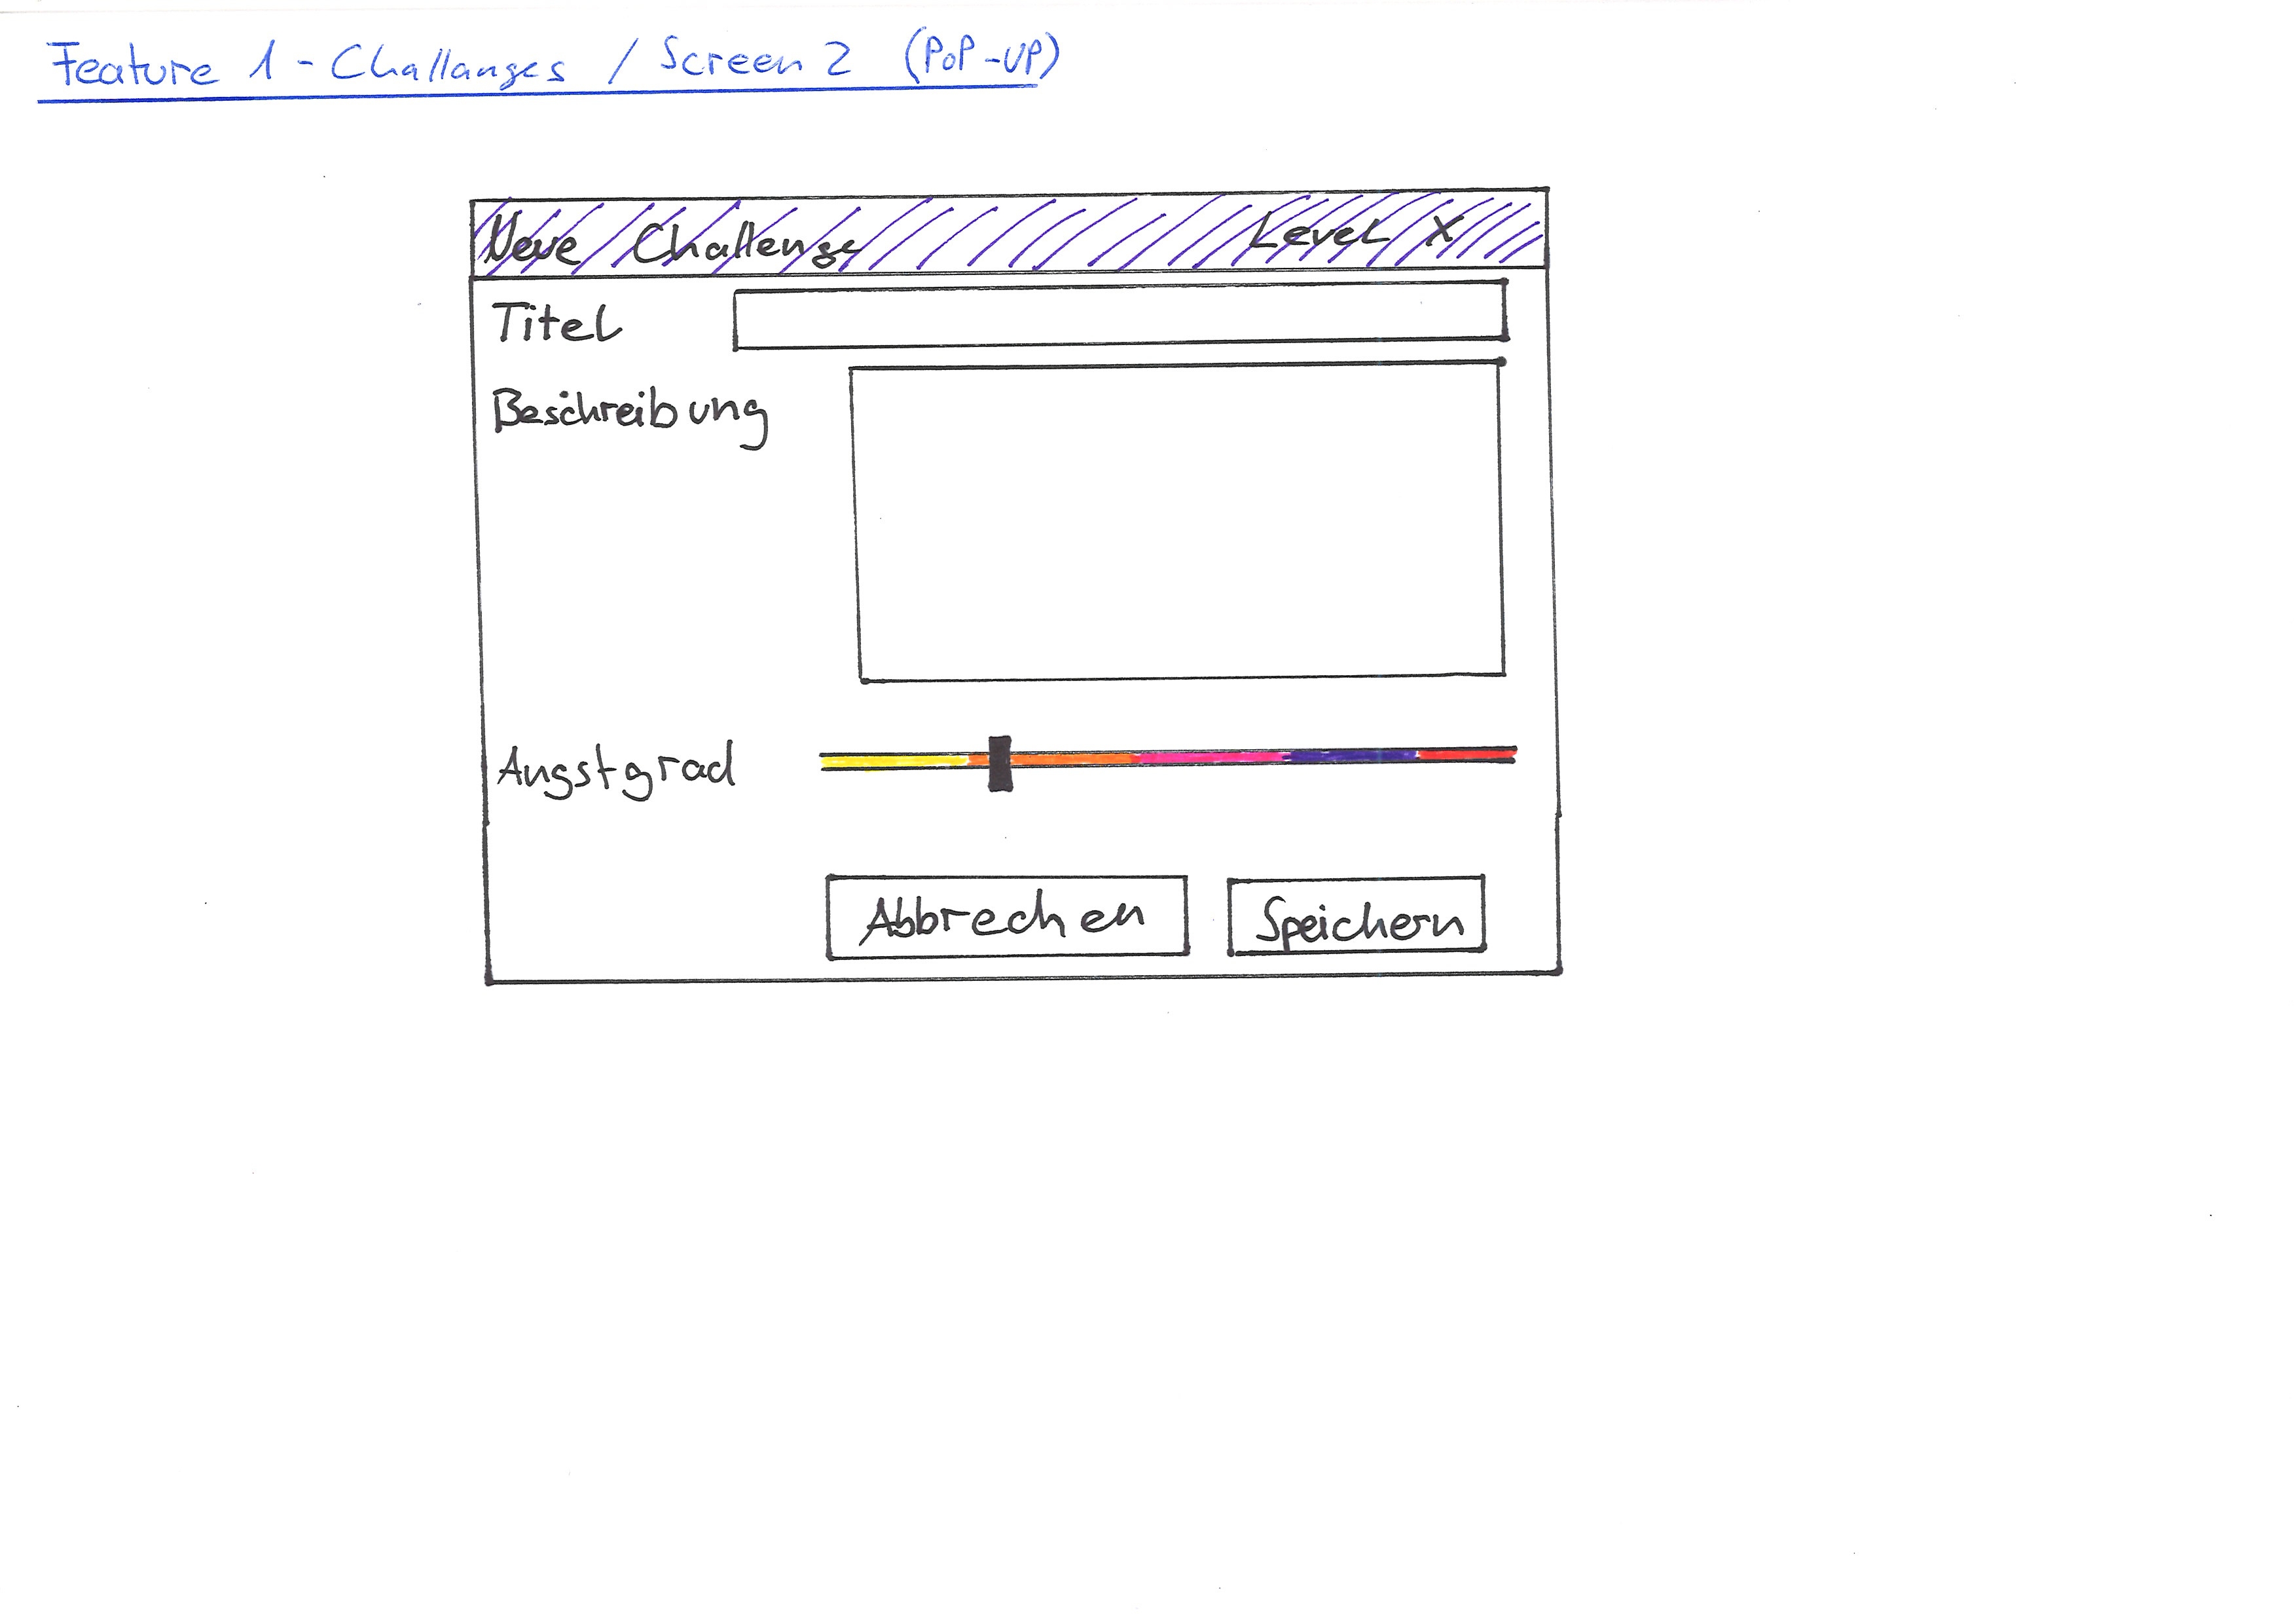 Feature 1 - Challanges / Screen 2 (POP-UP)
Neue Challenge Level X
Titel
Beschreibung
Angstgrad
Abbrechen Speichern